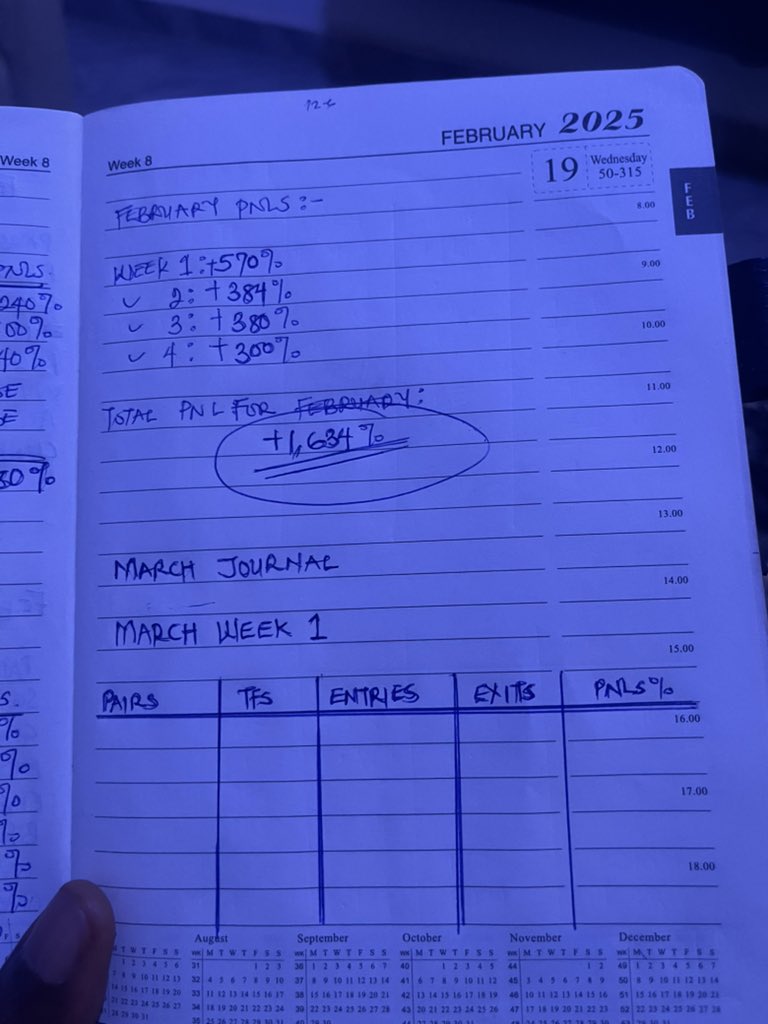 Week 8
PNLS
240%
00%
40%
SE
E
30%
S.
%
%
%
%
%
%
12-6
Week 8
FEBRUARY 2025
19 Wednesday
50-315
FEB
FEBRUARY PNLS:-
WEEK 1:+570%
2: +384%
3: +380%
4: +300%
TOTAL PNL FOR FEBRUARY:
+1,634%
MARCH JOURNAL
MARCH WEEK 1
PAIRS TFS ENTRIES EXITS PNLS%
8.00
9.00
10.00
11.00
12.00
13.00
14.00
15.00
16.00
17.00
18.00
August September October November December